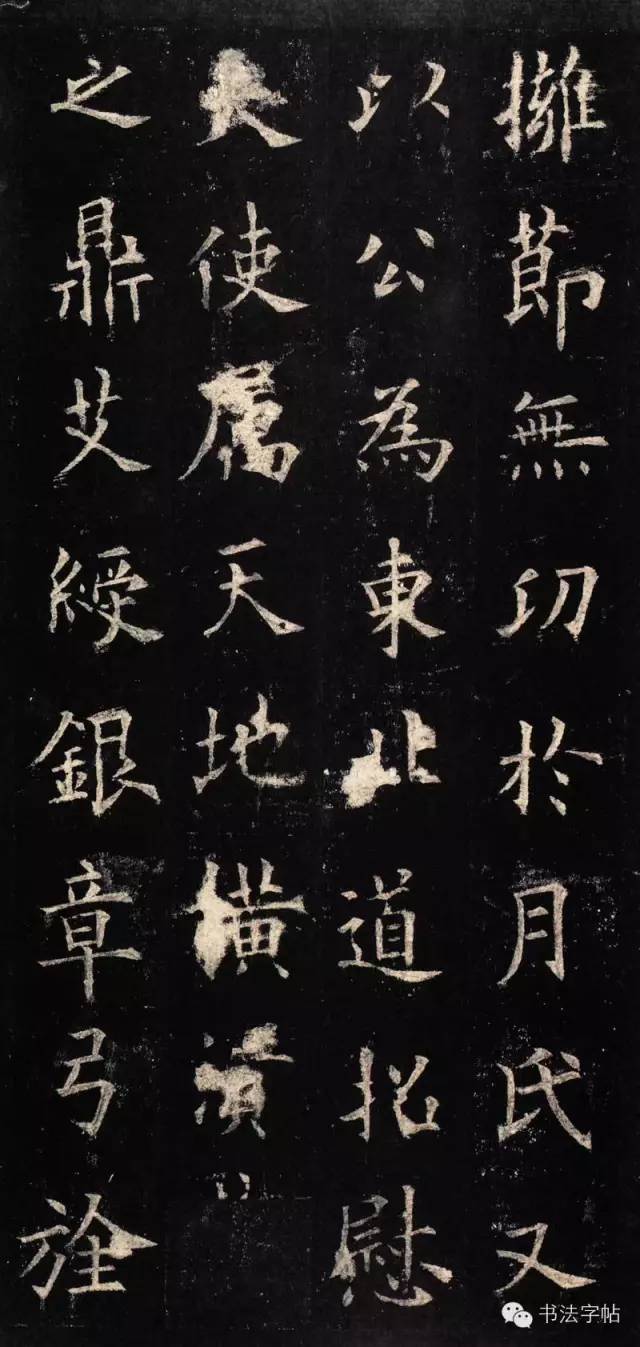 擁節無功於月氏又
以公為東北道招慰
大使属天地橫潰
之鼎艾綬銀章弓旌
书法字帖